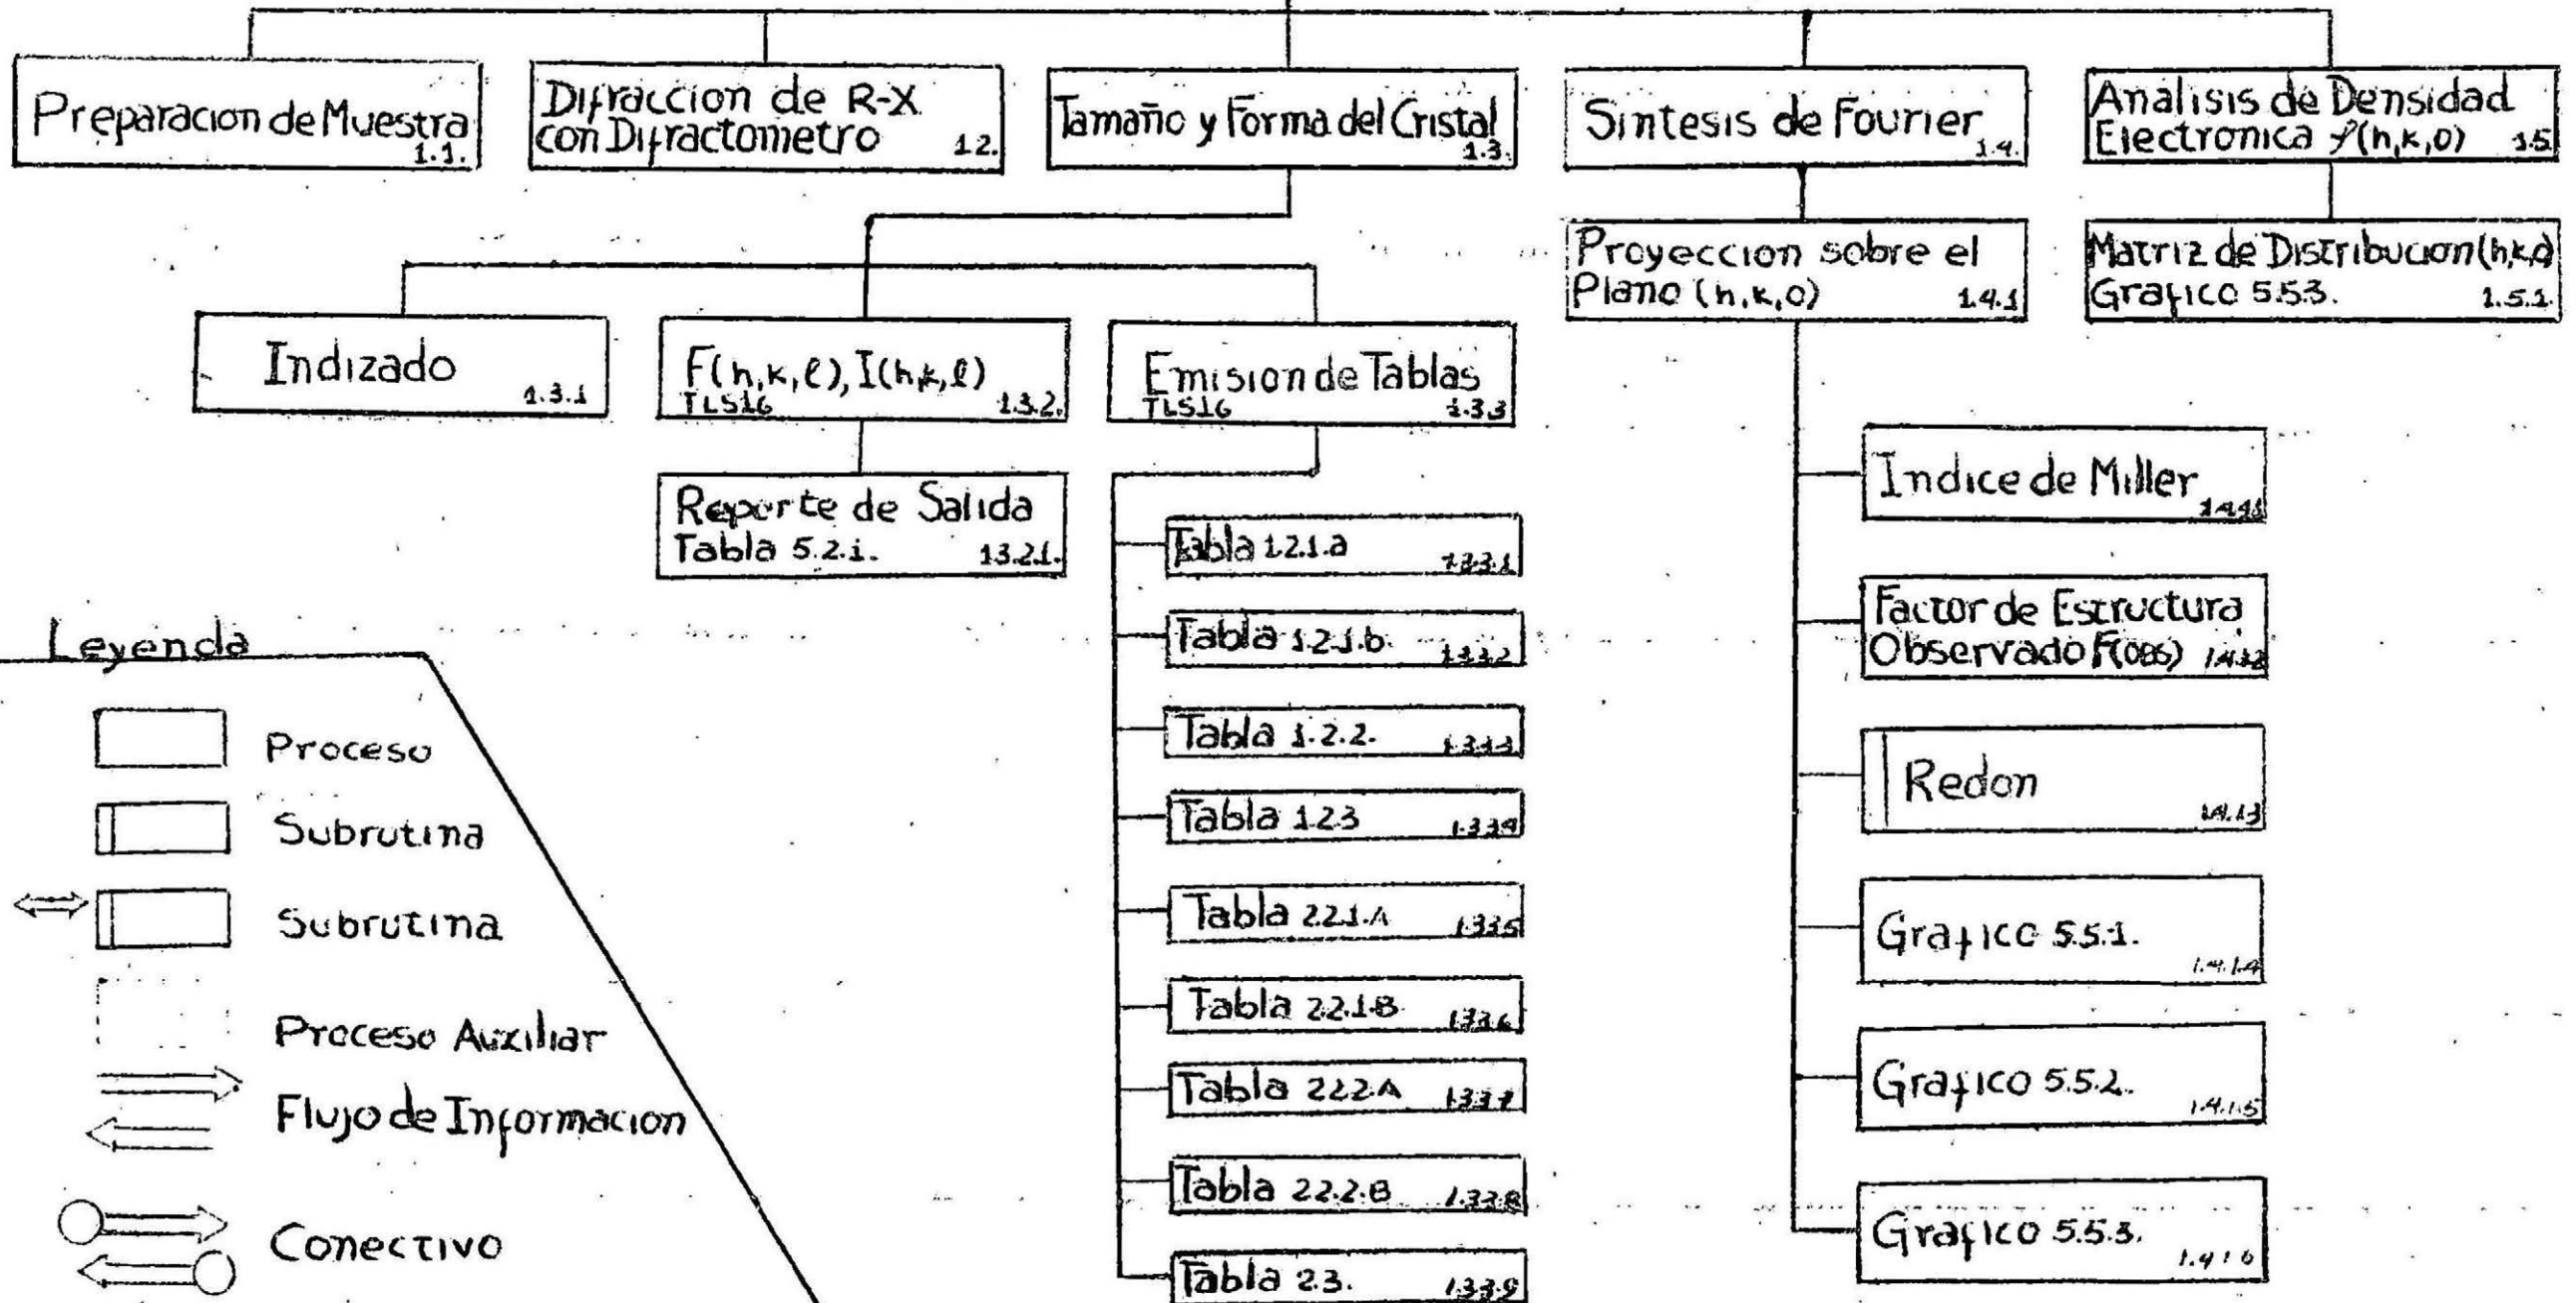 Preparacion de Muestra
1.1.
Difraccion de R-X
con Difractometro 1.2.
Tamaño y Forma del Cristal
1.3.
Sintesis de Fourier
1.4.
Analisis de Densidad
Electronica ƒ(h,k,0) 1.5
Proyeccion sobre el
Plano (h,k,0) 1.4.1
Matriz de Distribucion (h,k,0)
Grafico 5.5.3. 1.5.1.
Indizado
1.3.1
F(h,k,l), I(h,k,l)
TLS16 1.3.2.
Emision de Tablas
TLS16 1.3.3
Reporte de Salida
Tabla 5.2.1. 1.3.2.1.
Tabla 1.2.1.a 1.3.3.1
Tabla 1.2.1.b. 1.3.3.2
Tabla 1.2.2. 1.3.3.3
Tabla 1.2.3 1.3.3.4
Tabla 2.2.1.A 1.3.3.5
Tabla 2.2.1.B 1.3.3.6
Tabla 2.2.2.A 1.3.3.7
Tabla 2.2.2.B 1.3.3.8
Tabla 2.3. 1.3.3.9
Indice de Miller
1.4.1.1
Factor de Estructura
Observado F(OBS) 1.4.1.2
Redon
1.4.1.3
Grafico 5.5.1.
1.4.1.4
Grafico 5.5.2.
1.4.1.5
Grafico 5.5.3.
1.4.1.6
Leyenda
Proceso
Subrutina
Subrutina
Proceso Auxiliar
Flujo de Informacion
Conectivo